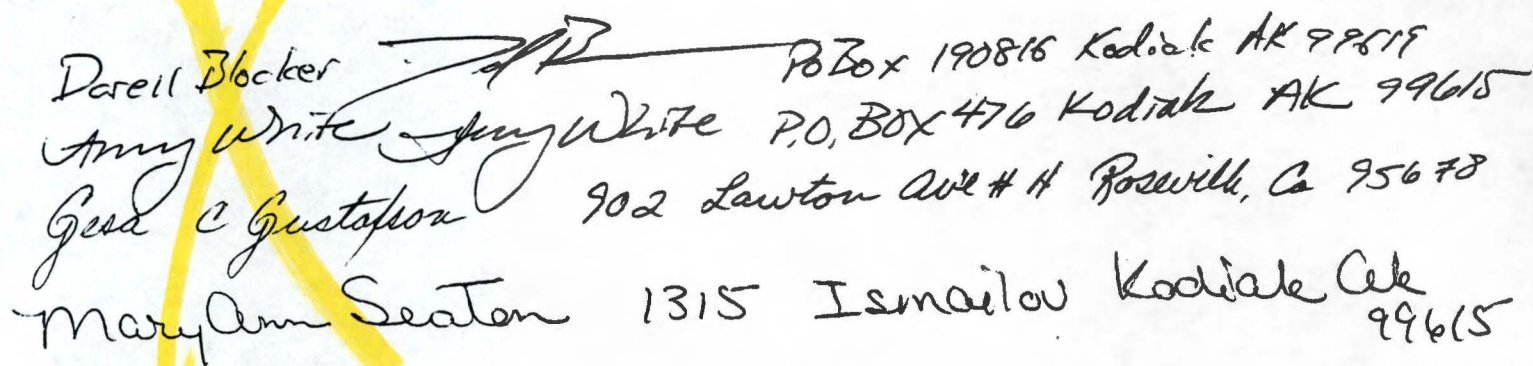 Darell Blocker PO Box 190816 Kodiak AK 99619
Amy White Amy White P.O. BOX 476 Kodiak AK 99615
Gesa C Gustafson 902 Lawton Ave # H Roseville, Ca 95678
Mary Ann Seaton 1315 Ismailov Kodiak Ak
99615